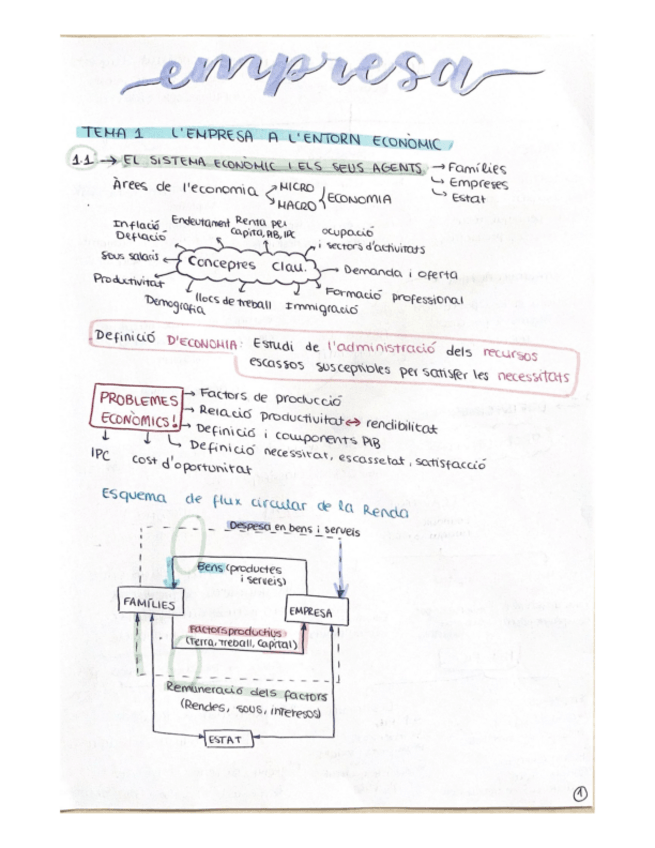 empresa
TEMA 1 L'EMPRESA A L'ENTORN ECONÒMIC
1.1 → EL SISTEMA ECONÒMIC I ELS SEUS AGENTS → Famílies
↳ Empreses
↳ Estat
Àrees de l'economia MICRO
MACRO ECONOMIA
Inflació
Deflació
Endeutament
Renta per
capita, PIB, IPC
ocupació
i sectors d'activitats
Sous salaris
Conceptes clau.
Demanda i oferta
Productivitat
Formació professional
Demografia
llocs de treball
Immigració
Definició D'ECONOMIA: Estudi de l'administració dels recursos
escassos susceptibles per satisfer les necessitats
PROBLEMES
ECONÒMICS!
→ Factors de producció
→ Relació productivitat ↔ rendibilitat
→ Definició i components PIB
↳ Definició necessitat, escassetat, satisfacció
IPC
cost d'oportunitat
Esquema de flux circular de la Renda
Despesa en bens i serveis
Bens (productes
i serveis)
FAMÍLIES
EMPRESA
Factors productius
(Terra, treball, Capital)
Remuneració dels factors
(Rendes, sous, interesos)
ESTAT
1